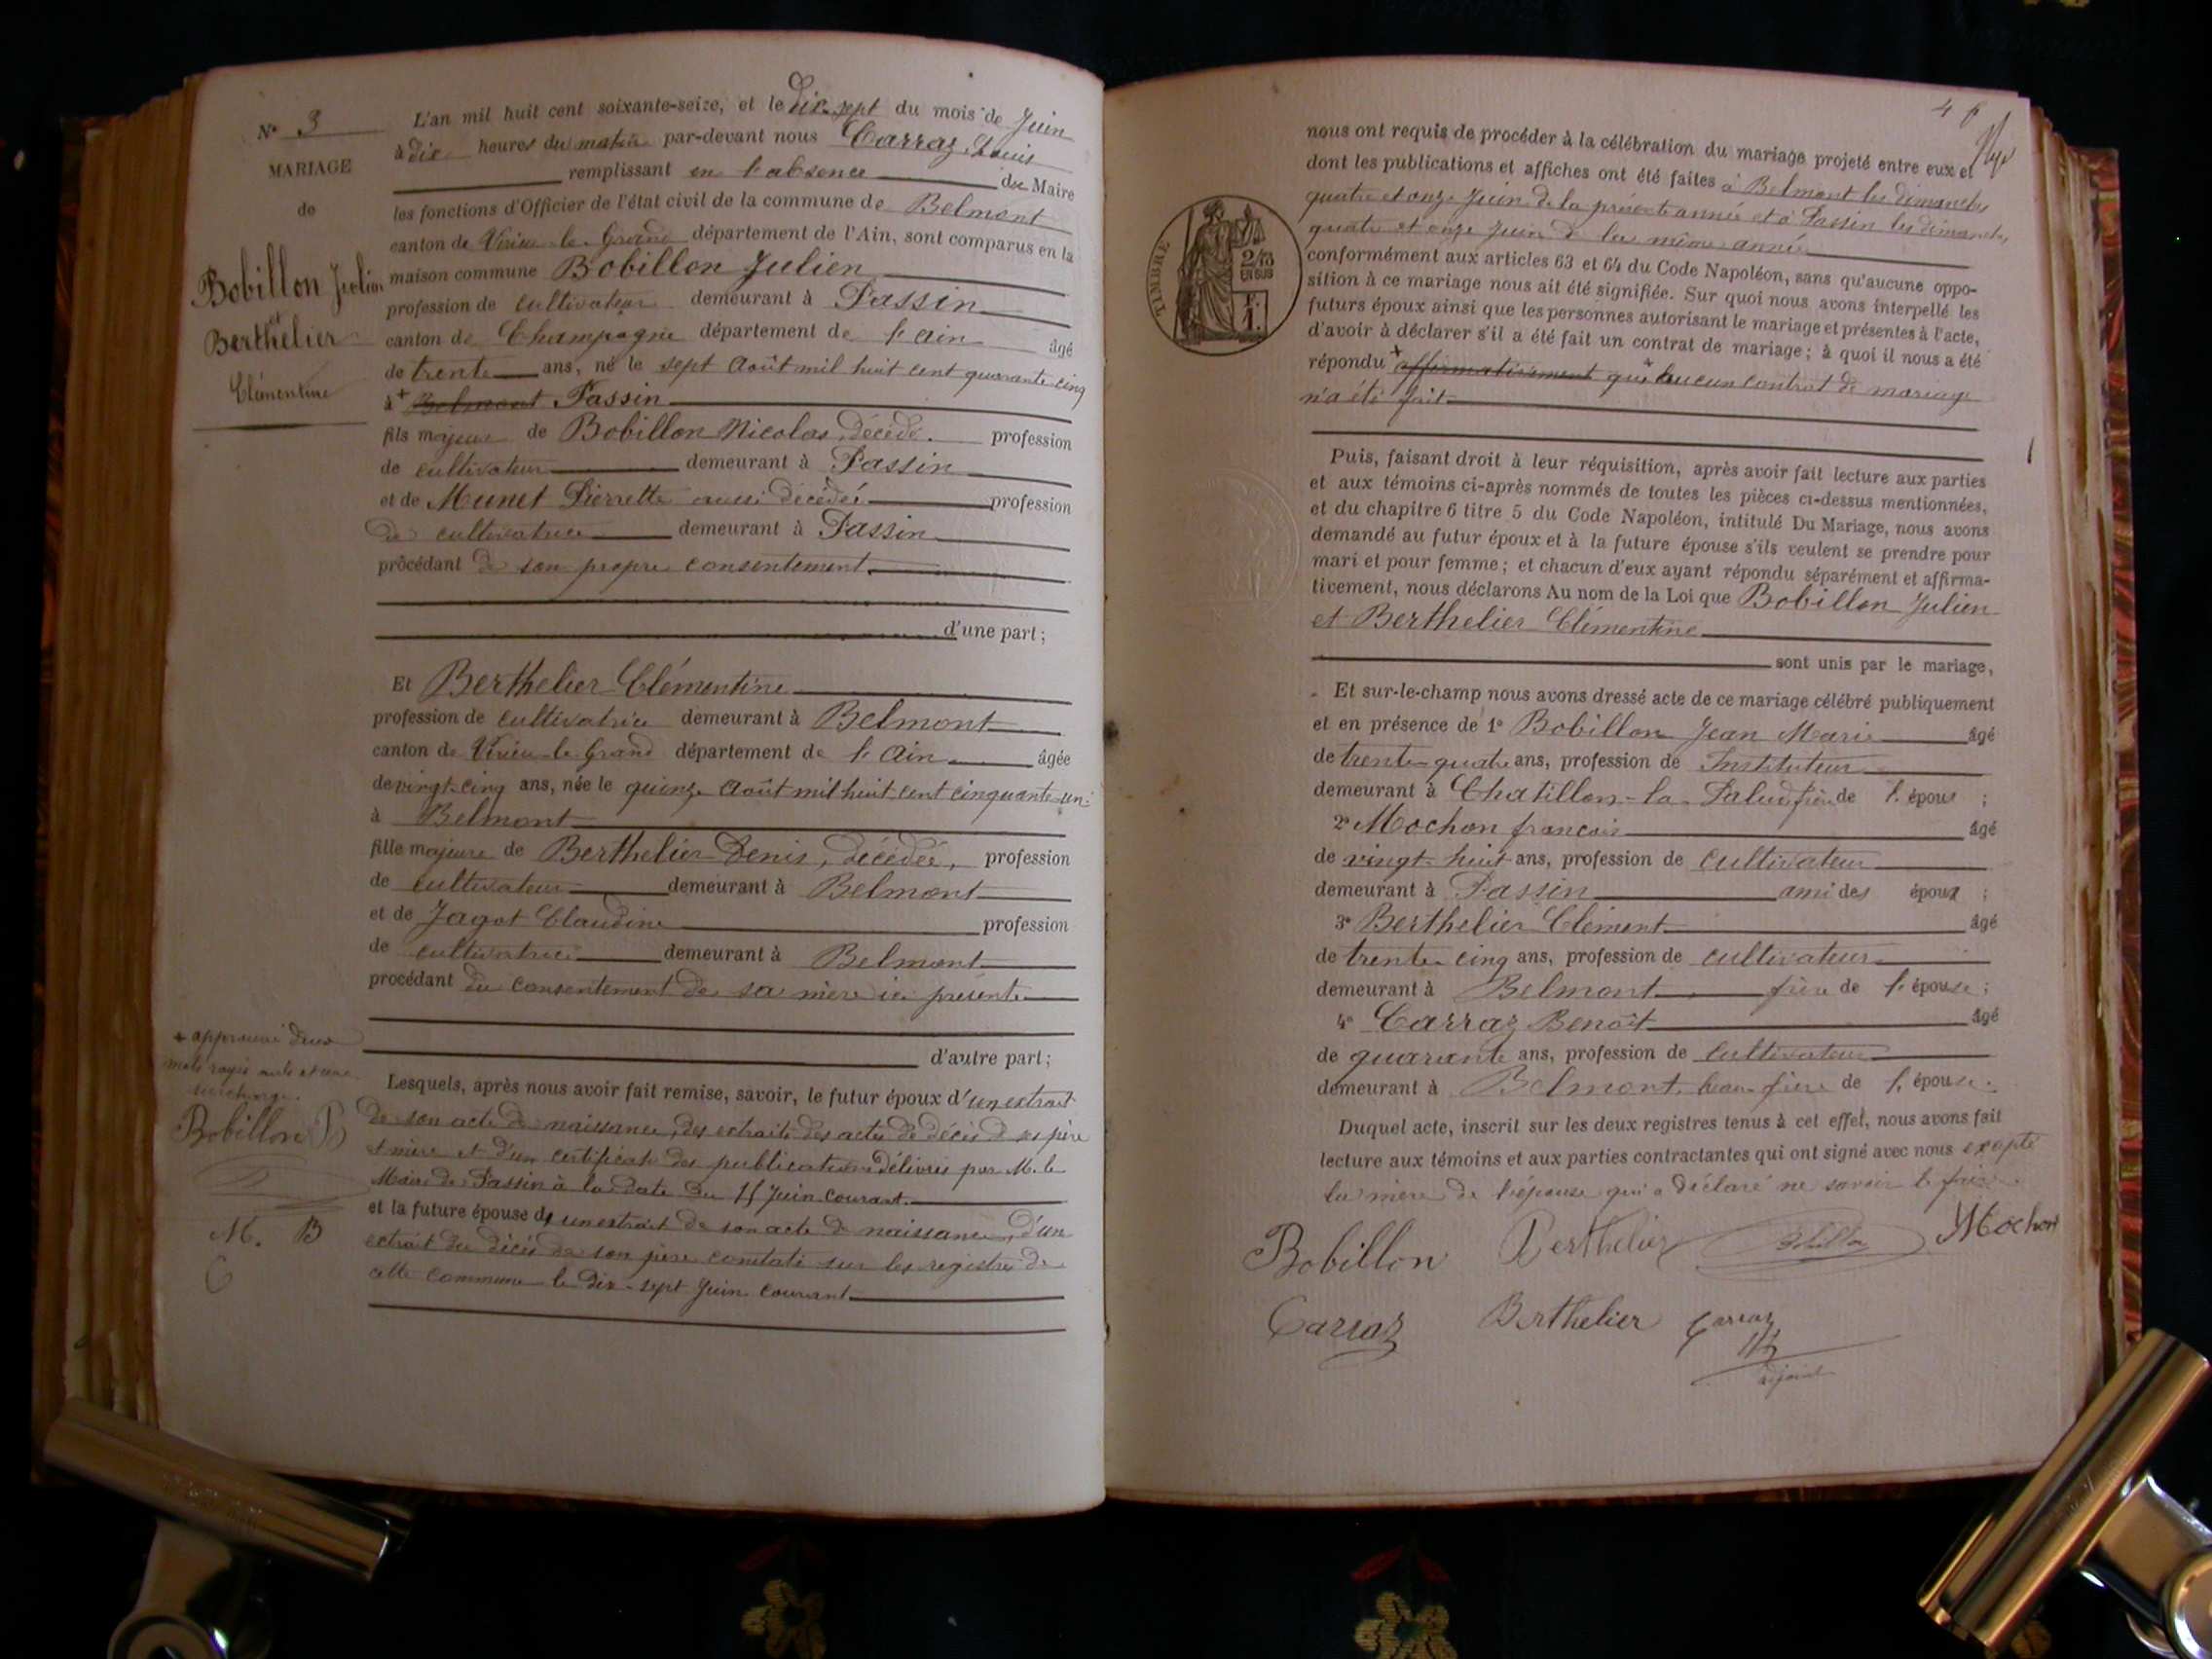 N° 3
MARIAGE
de
Bobillon Julien
et
Berthelier
Clémentine
L'an mil huit cent soixante-seize, et le dix-sept du mois de Juin
à dix heures du matin par-devant nous Carraz Louis
remplissant en l'absence du Maire
les fonctions d'Officier de l'état civil de la commune de Belmont
canton de Virieu-le-Grand département de l'Ain, sont comparus en la
maison commune Bobillon Julien
profession de cultivateur demeurant à Passin
canton de Champagne département de l'ain âgé
de trente ans, né le sept Août mil huit cent quarante-cinq
à + Belmont Passin
fils majeur de Bobillon Nicolas, décédé. profession
de cultivateur demeurant à Passin
et de Munet Pierrette aussi décédée profession
de cultivatrice demeurant à Passin
procédant de son propre consentement
d'une part ;
Et Berthelier Clémentine
profession de cultivatrice demeurant à Belmont
canton de Virieu-le-Grand département de l'Ain âgée
de vingt-cinq ans, née le quinze Août mil huit cent cinquante-un
à Belmont
fille majeure de Berthelier Denis, décédée, profession
de cultivateur demeurant à Belmont
et de Jagot Claudine profession
de cultivatrice demeurant à Belmont
procédant du consentement de sa mère ici présente
d'autre part ;
Lesquels, après nous avoir fait remise, savoir, le futur époux d'un extrait
de son acte de naissance, des extraits des actes de décès de ses père
et mère et d'un certificat des publications délivrés par M. le
Maire de Passin à la date du 15 Juin courant.
et la future épouse d'un extrait de son acte de naissance, d'un
extrait du décès de son père constaté sur les registres de
cette commune le dix-sept Juin courant
+ approuvé deux
mots rayés nuls et une
surcharge.
Bobillon B
M. B
C
46
nous ont requis de procéder à la célébration du mariage projeté entre eux et
dont les publications et affiches ont été faites à Belmont les dimanches
quatre et onze Juin de la présente année et à Passin les dimanches
quatre et onze Juin de la même année
conformément aux articles 63 et 64 du Code Napoléon, sans qu'aucune oppo-
sition à ce mariage nous ait été signifiée. Sur quoi nous avons interpellé les
futurs époux ainsi que les personnes autorisant le mariage et présentes à l'acte,
d'avoir à déclarer s'il a été fait un contrat de mariage ; à quoi il nous a été
répondu + affirmativement qu'aucun contrat de mariage
n'a été fait
TIMBRE
2/10
EN SUS
1 F.
Puis, faisant droit à leur réquisition, après avoir fait lecture aux parties
et aux témoins ci-après nommés de toutes les pièces ci-dessus mentionnées,
et du chapitre 6 titre 5 du Code Napoléon, intitulé Du Mariage, nous avons
demandé au futur époux et à la future épouse s'ils veulent se prendre pour
mari et pour femme ; et chacun d'eux ayant répondu séparément et affirma-
tivement, nous déclarons Au nom de la Loi que Bobillon Julien
et Berthelier Clémentine
sont unis par le mariage,
Et sur-le-champ nous avons dressé acte de ce mariage célébré publiquement
et en présence de 1° Bobillon Jean Marie âgé
de trente-quatre ans, profession de Instituteur
demeurant à Chatillon-la-Palud frère de l'époux ;
2° Mochon françois âgé
de vingt-huit ans, profession de cultivateur
demeurant à Passin ami des époux ;
3° Berthelier Clément âgé
de trente-cinq ans, profession de cultivateur
demeurant à Belmont frère de l'épouse ;
4° Carraz Benoît âgé
de quarante ans, profession de cultivateur
demeurant à Belmont, beau-frère de l'épouse.
Duquel acte, inscrit sur les deux registres tenus à cet effet, nous avons fait
lecture aux témoins et aux parties contractantes qui ont signé avec nous excepté
la mère de l'épouse qui a déclaré ne savoir le faire.
Bobillon Berthelier Bobillon Mochon
Carraz Berthelier Carraz
adjoint